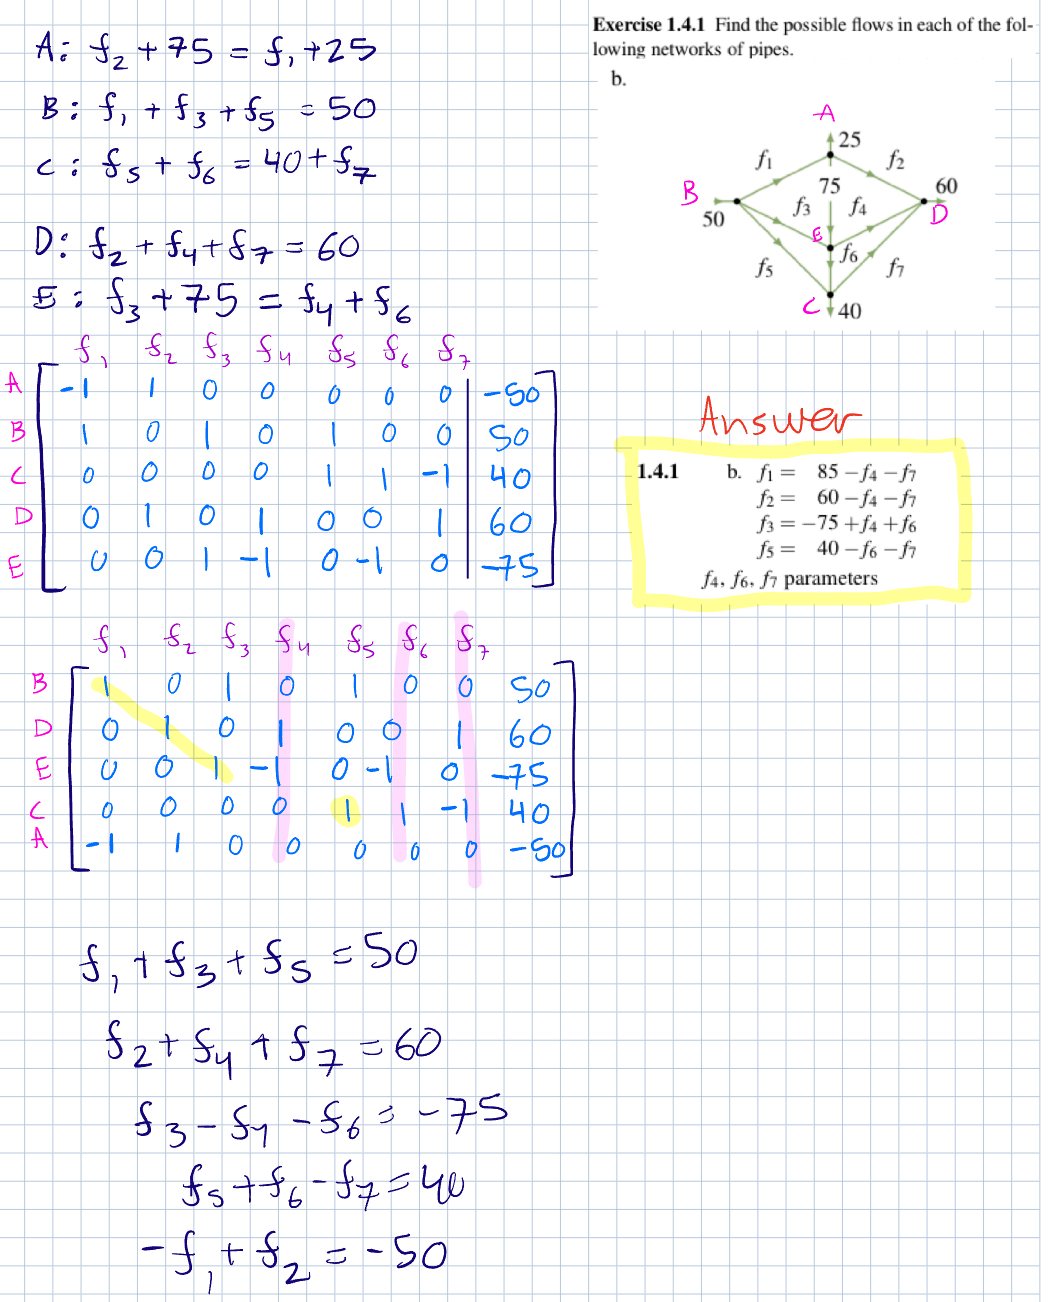 A: f₂ + 75 = f₁ + 25
B: f₁ + f₃ + f₅ = 50
C: f₅ + f₆ = 40 + f₇
D: f₂ + f₄ + f₇ = 60
E: f₃ + 75 = f₄ + f₆
f₁ f₂ f₃ f₄ f₅ f₆ f₇
A -1 1 0 0 0 0 0 | -50
B 1 0 1 0 1 0 0 | 50
C 0 0 0 0 1 1 -1 | 40
D 0 1 0 1 0 0 1 | 60
E 0 0 1 -1 0 -1 0 | -75
f₁ f₂ f₃ f₄ f₅ f₆ f₇
B 1 0 1 0 1 0 0 50
D 0 1 0 1 0 0 1 60
E 0 0 1 -1 0 -1 0 -75
C 0 0 0 0 1 1 -1 40
A -1 1 0 0 0 0 0 -50
f₁ + f₃ + f₅ = 50
f₂ + f₄ + f₇ = 60
f₃ - f₄ - f₆ = -75
f₅ + f₆ - f₇ = 40
-f₁ + f₂ = -50
Exercise 1.4.1 Find the possible flows in each of the fol-
lowing networks of pipes.
b.
A
25
f₁
f₂
B
75
60
50
f₃
f₄
D
E
f₆
f₅
f₇
C
40
Answer
1.4.1 b. f₁ = 85 − f₄ − f₇
f₂ = 60 − f₄ − f₇
f₃ = −75 + f₄ + f₆
f₅ = 40 − f₆ − f₇
f₄, f₆, f₇ parameters